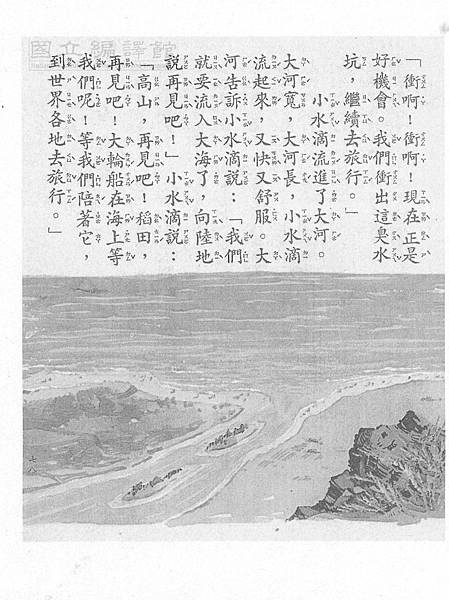 國立編譯館
「衝啊！衝啊！現在正是
好機會。我們衝出這臭水
坑，繼續去旅行。」
小水滴流進了大河。
大河寬，大河長，小水滴
流起來，又快又舒服。大
河告訴小水滴說：「我們
就要流入大海了，向陸地
說再見吧！」小水滴說：
「高山，再見吧！稻田，
再見吧！大輪船在海上等
我們呢！等我們陪著它，
到世界各地去旅行。」
六八